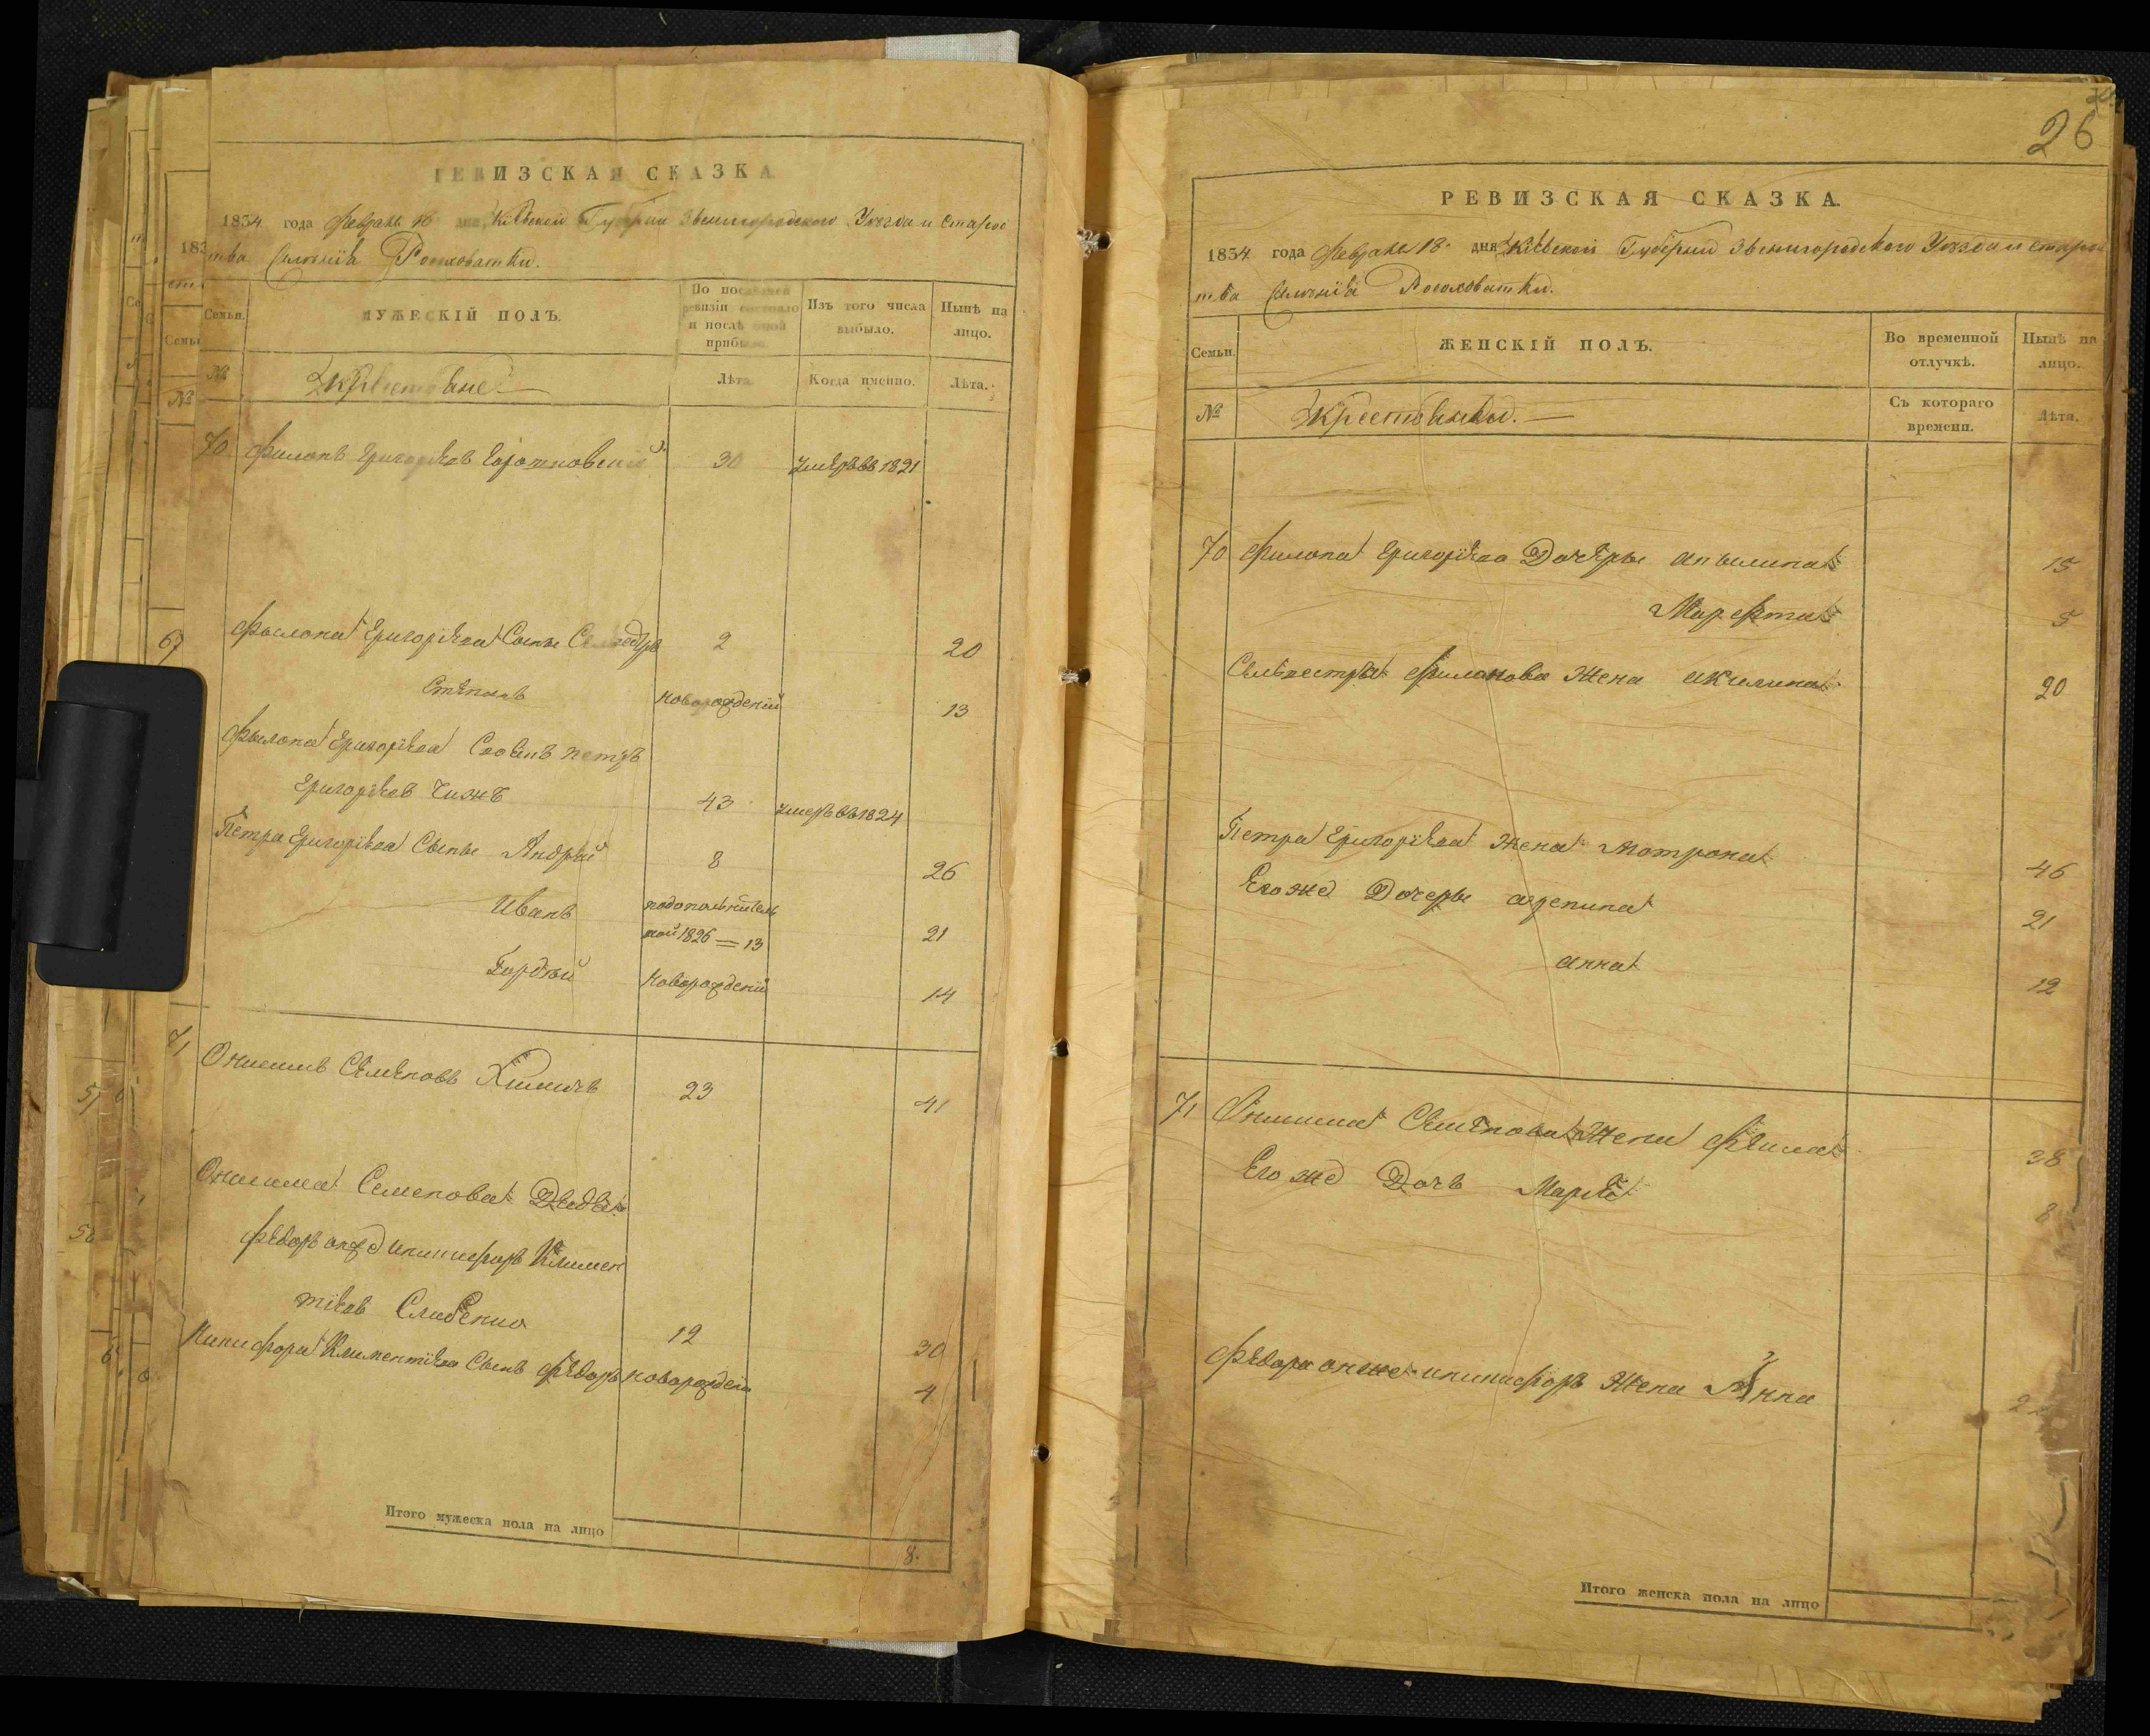 РЕВИЗСКАЯ СКАЗКА
1834 года Февраль 18 дня Кіевской Губерніи Звенигородского Уезда и старос
тва селенія Росоховатки.
Семьи.
МУЖЕСКІЙ ПОЛЪ.
По последней ревизіи состояло и послѣ оной прибыло.
Изъ того числа выбыло.
Нынѣ на лицо.
№
Крестьяне
Лѣта.
Когда именно.
Лѣта.
70 Филопъ Григоріевъ 30 умеръ въ 1821
Филопа Григоріева Сыны 2 20
Степанъ новорожденій 13
Филопа Григоріева петръ
Григоріевъ Чижъ 43 умеръ въ 1824
Петра Григоріева Сыны Андрѣй 8 26
Иванъ
1826 = 13 21
Гордѣй новорожденій 14
71 Онисимъ Семеновъ 23 41
Онисима Семенова
Федоръ онже иникифоръ Климен
тіевъ 12 30
Никифора Климентіева Сынъ Федоръ новорожденій 4
Итого мужеска пола на лицо 8.
26
РЕВИЗСКАЯ СКАЗКА.
1834 года Февраля 18 дня Кіевской Губерніи Звенигородского Уезда и старос
тва селенія Росоховатки.
Семьи.
ЖЕНСКІЙ ПОЛЪ.
Во временной отлучкѣ.
Нынѣ на лицо.
№
Крестьянки.
Съ котораго времени.
Лѣта.
70 Филопа Григоріева Дочеры 15
Марфта 5
Селвестра Филонова Жена акилина 20
Петра Григоріева Жена мотрона 46
Его же Дочеры агрепина 21
анна 12
71 Онисима Семенова Жена 38
Его же Дочь Марія 8
Федора онже иникифоръ Жена Анна
Итого женска пола на лицо